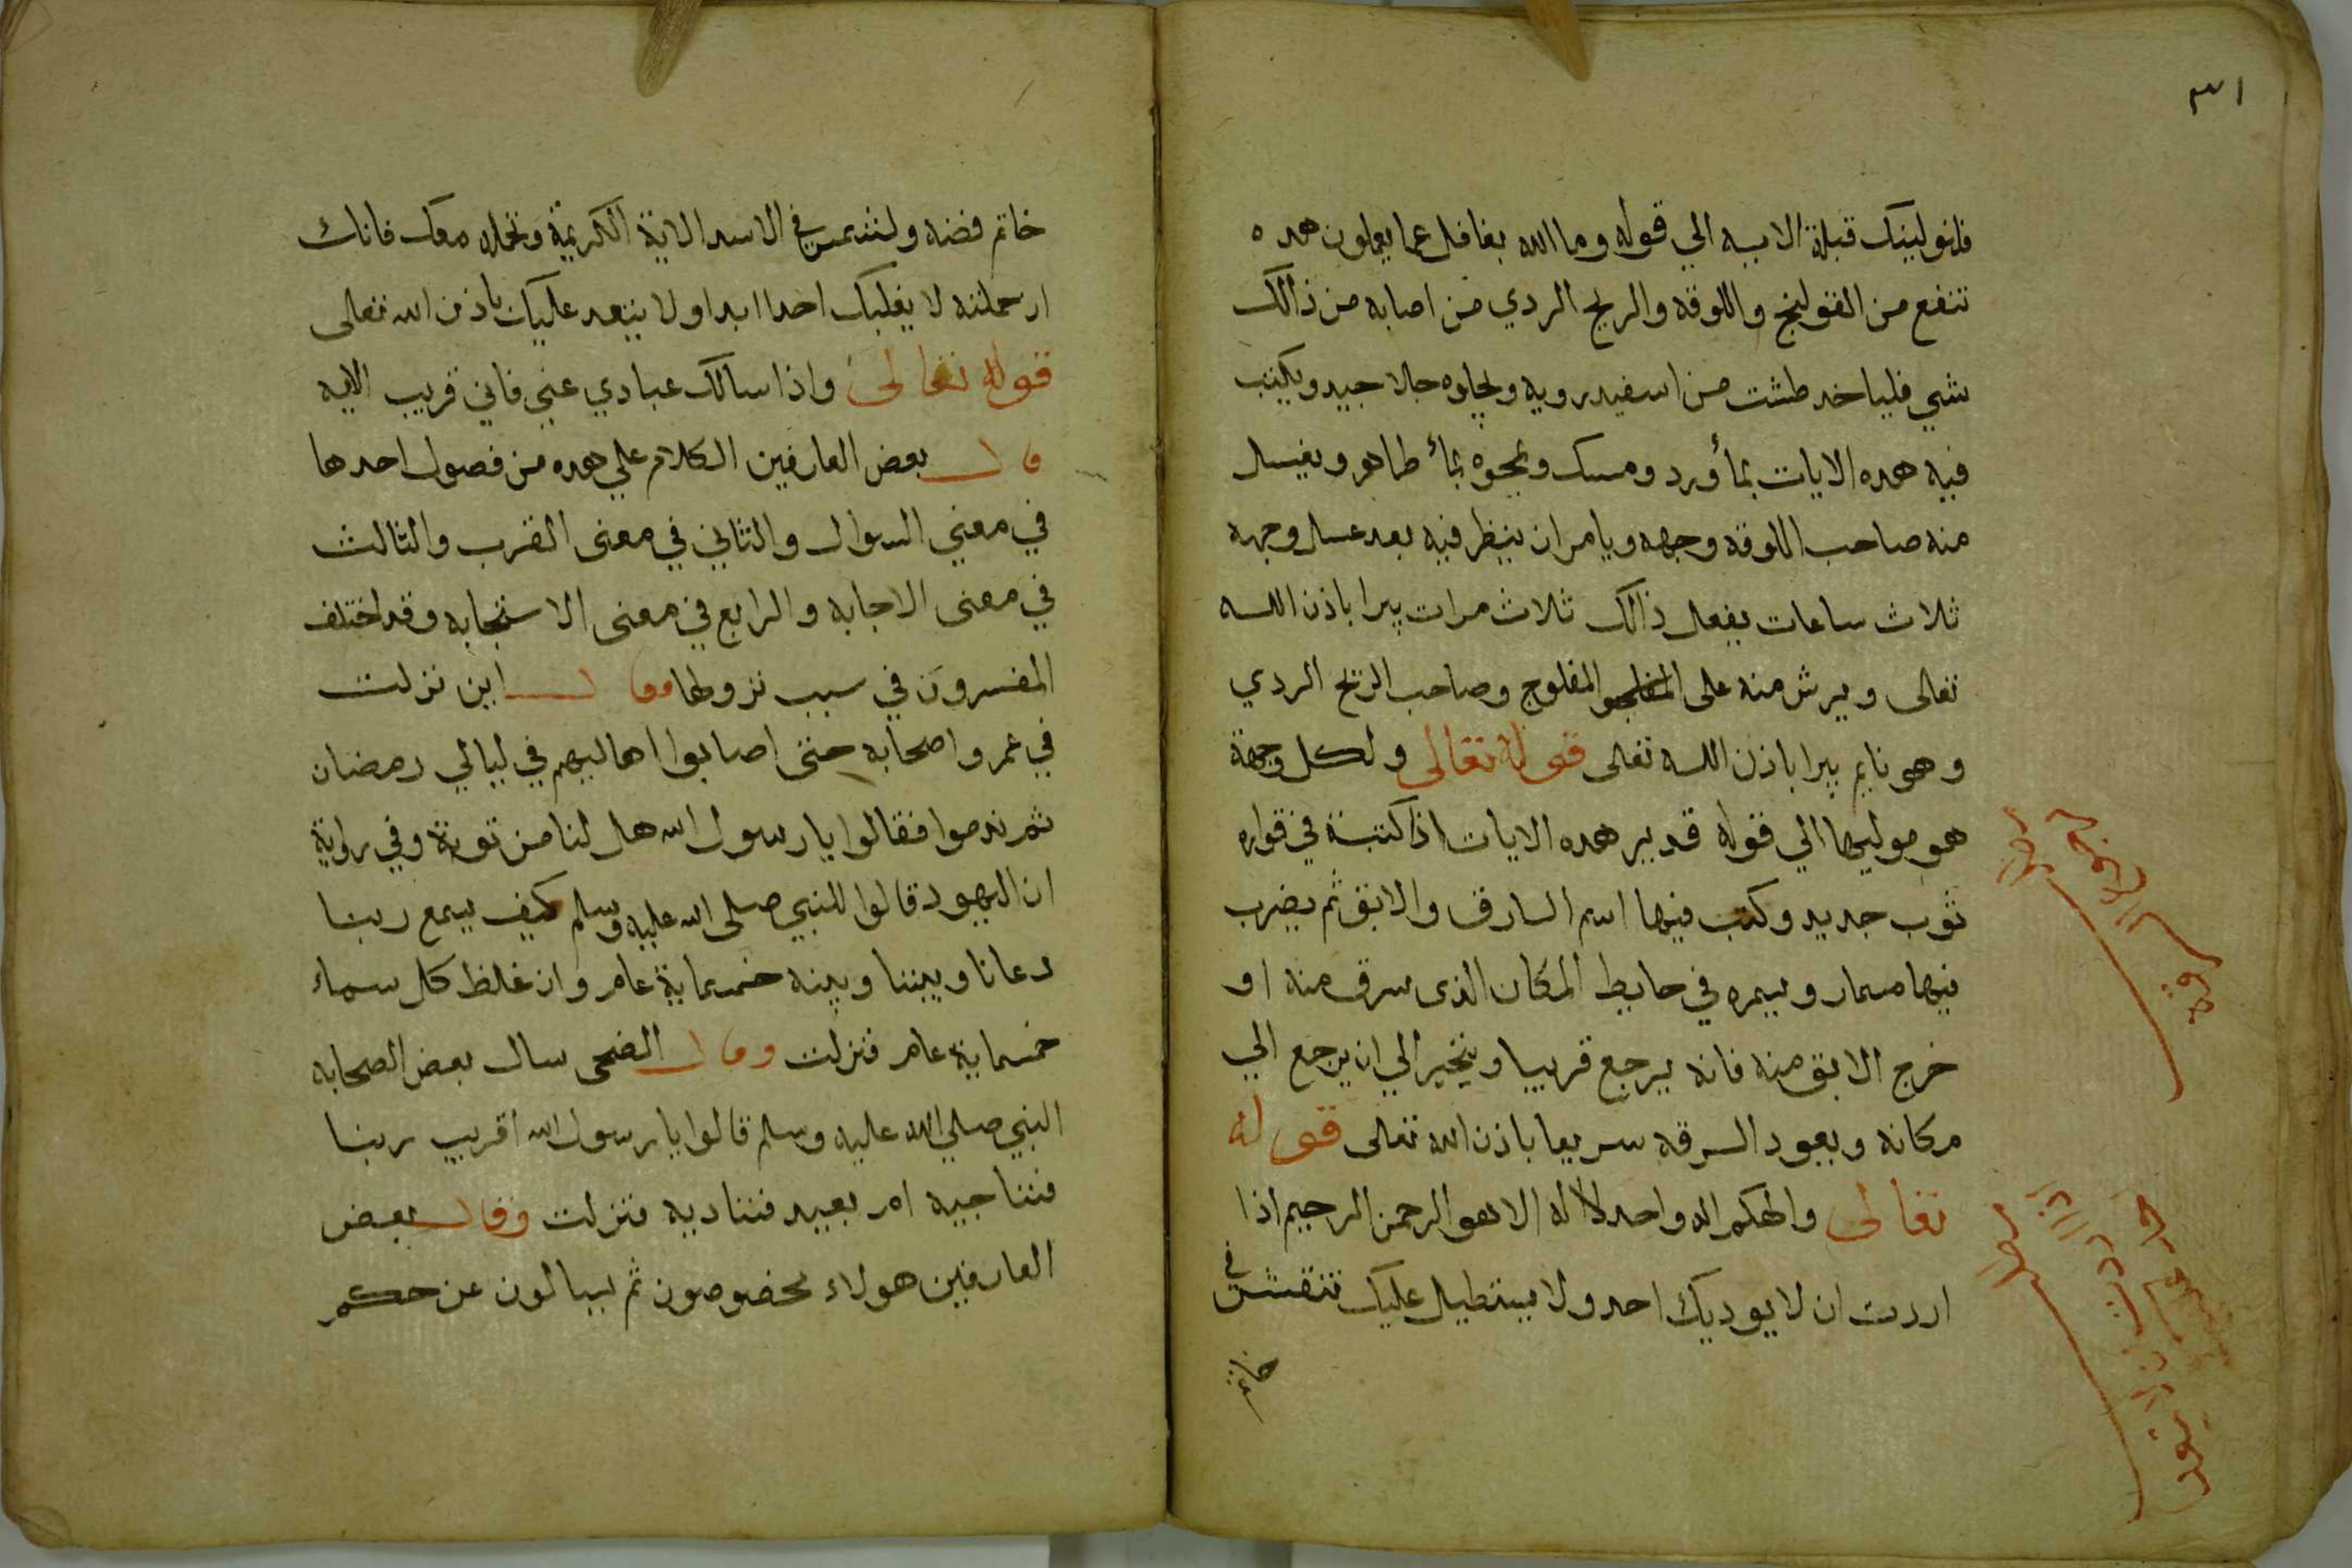 ٣١
فلنولينك قبلة الايه الي قوله وما الله بغافل عما يعملون هده
تنفع من القولنج واللوقه والريح الردي من اصابه من ذالك
شي فلياخد طشت من اسفيدرويه ويجلوه جلا جيد ويكتب
فيه هده الايات بمأ ورد ومسك ويمحوه بمأ طاهر ويغسل
منه صاحب اللوقه وجهه ويامر ان ينظر فيه بعد غسل وجهه
ثلاث ساعات يفعل ذالك ثلاث مرات يبرا باذن الله
تعالى ويرش منه على المفلوج وصاحب الريح الردي
وهو نايم يبرا باذن الله تعالى قوله تعالى ولكل وجهة
هو موليها الي قوله قدير هده الايات اذا كتبة في قواره
ثوب جديد وكتب فيها اسم السارق والابق ثم يضرب
فيها مسمار ويسمره في حايط المكان الذى سرق منه او
خرج الابق منه فانه يرجع قريبا ويتحير الي ان يرجع الي
مكانه ويعود السرقه سريعا باذن الله تعالى قوله
تعالى والهكم اله واحد لا اله الا هو الرحمن الرحيم اذا
اردت ان لا يوديك احد ولا يستطيل عليك تنقش في
خاتم
خاتم فضه ولشمس في الاسد الاية الكريمة وتحمله معك فانك
ان حملته لا يغلبك احدا ابدا ولا يتعد عليك باذن الله تعالى
قوله تعالى واذا سالك عبادي عني فاني قريب الايه
قال بعض العارفين الكلام علي هده من فصول احدها
في معني السوال والثاني في معنى القرب والثالث
في معنى الاجابه والرابع في معنى الاستجابه وقد اختلف
المفسرون في سبب نزولها فقال ابن نزلت
في عمر واصحابه حتى اصابوا اهاليهم في ليالي رمضان
ثم ندموا فقالوا يا رسول الله هل لنا من توبة وفي رواية
ان اليهود قالوا للنبي صلى الله عليه وسلم كيف يسمع ربنا
دعانا وبيننا وبينه خمسماية عام وان غلظ كل سماء
خمسماية عام فنزلت وقال الضحى سال بعض الصحابه
النبي صلي الله عليه وسلم قالوا يا رسول الله اقريب ربنا
فنناجيه ام بعيد فنناديه فنزلت وقال بعض
العارفين هولاء مخصوصون ثم يسالون عن حكم